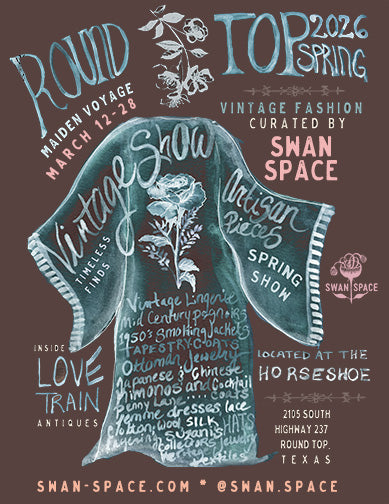 ROUND TOP 2026 SPRING
MAIDEN VOYAGE
MARCH 12-28
VINTAGE FASHION
CURATED BY
SWAN
SPACE
Vintage Show
TIMELESS
FINDS
Artisan
Pieces
SPRING
SHOW
SWAN SPACE
Vintage Lingerie
Mid Century
1950's Smoking Jackets
TAPESTRY COATS
Ottoman Jewelry
Japanese & Chinese
Kimonos and Cocktail
coats
dresses lace
Cotton, wool SILK HATS
SUZANIS
textiles
INSIDE
LOVE
TRAIN
ANTIQUES
LOCATED AT THE
HORSESHOE
2105 SOUTH
HIGHWAY 237
ROUND TOP,
TEXAS
SWAN-SPACE.COM * @SWAN.SPACE